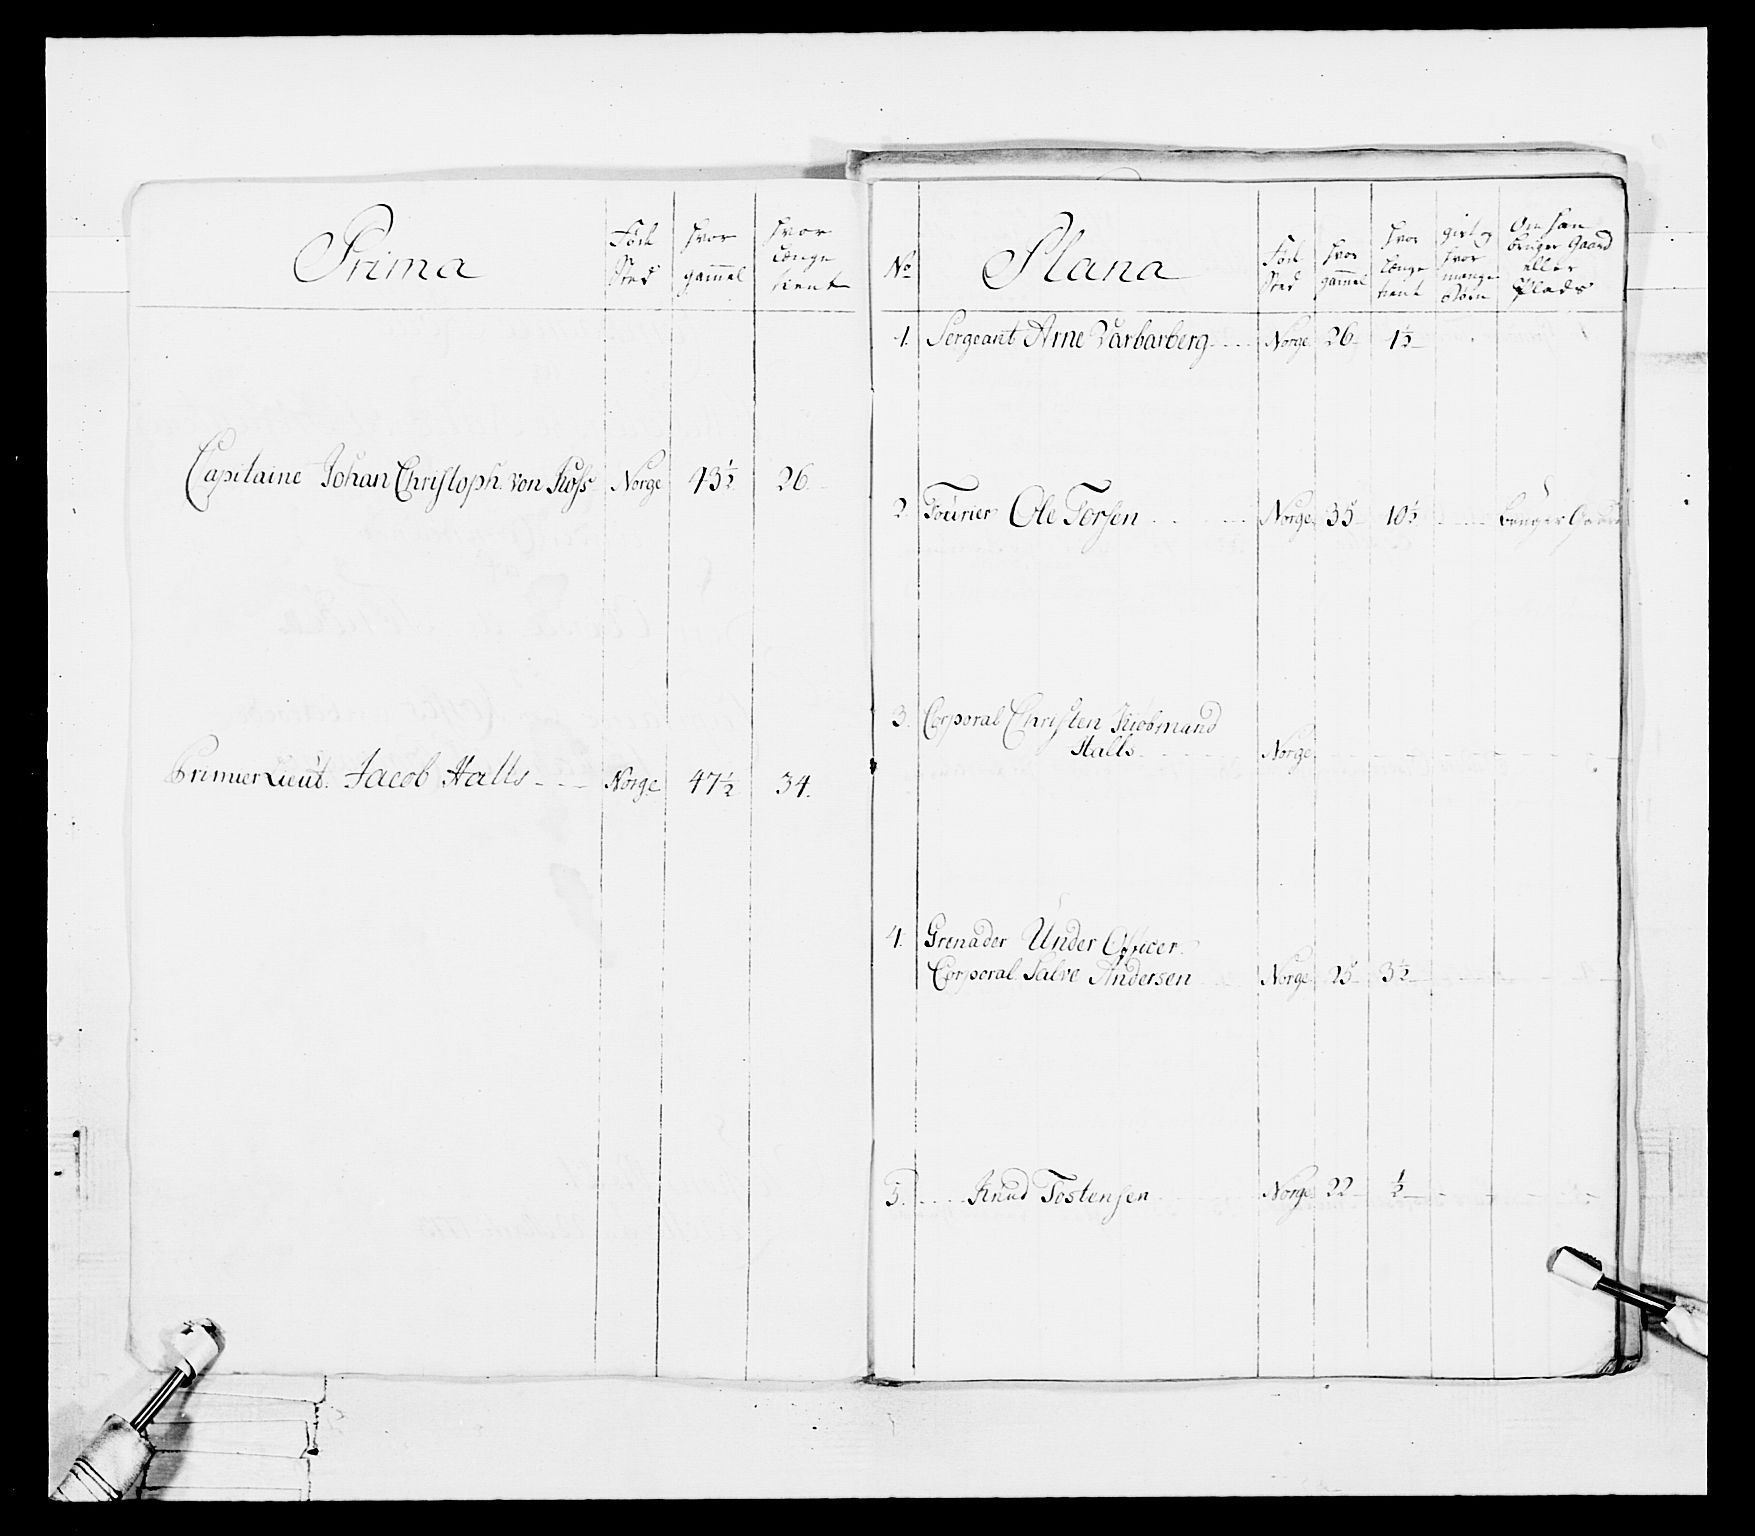 Prima
Föd Sted
hvor gammel
hvor længe tient
Capitaine Johan Christoph. von Koss Norge 43½ 26.
Premier Lieut. Jacob Stalls Norge 47½ 34.
No
Plana
Föd Sted
hvor gammel
hvor længe tient
gift og hvor mange Börn
Om han bruger Gaard eller Plads
1. Sergeant Arne Warbarberg Norge 26 1½
2. Fourier Ole Torsen Norge 35 10½ bruger Gaard
3. Corporal Christen
Stalls Norge
4. Grenader Under Officer.
Corporal Salve Andersen Norge 25 3½
5. Knud Tostensen Norge 22 ½